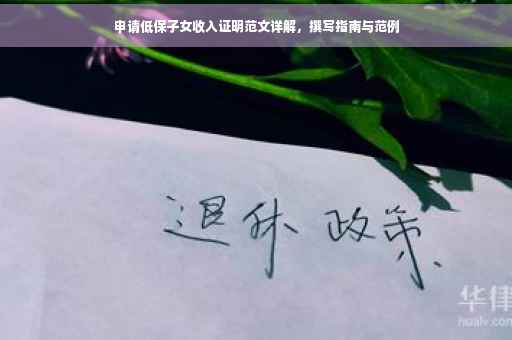 申请低保子女收入证明范文详解，撰写指南与范例
退休 政策
华律
hualv.com